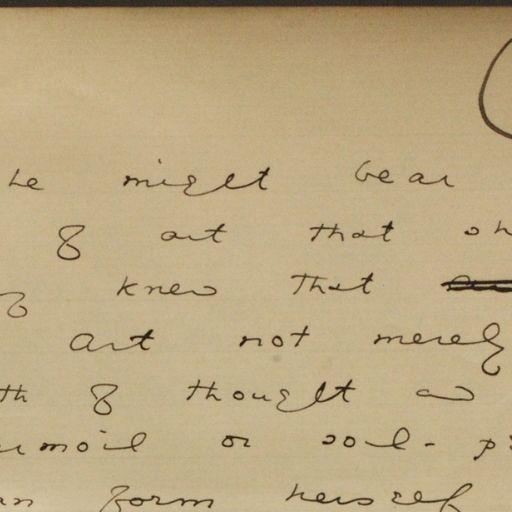 he might bear
of art that
knew that
Art not merely
th of thought and
urmoil or soul-
form herself